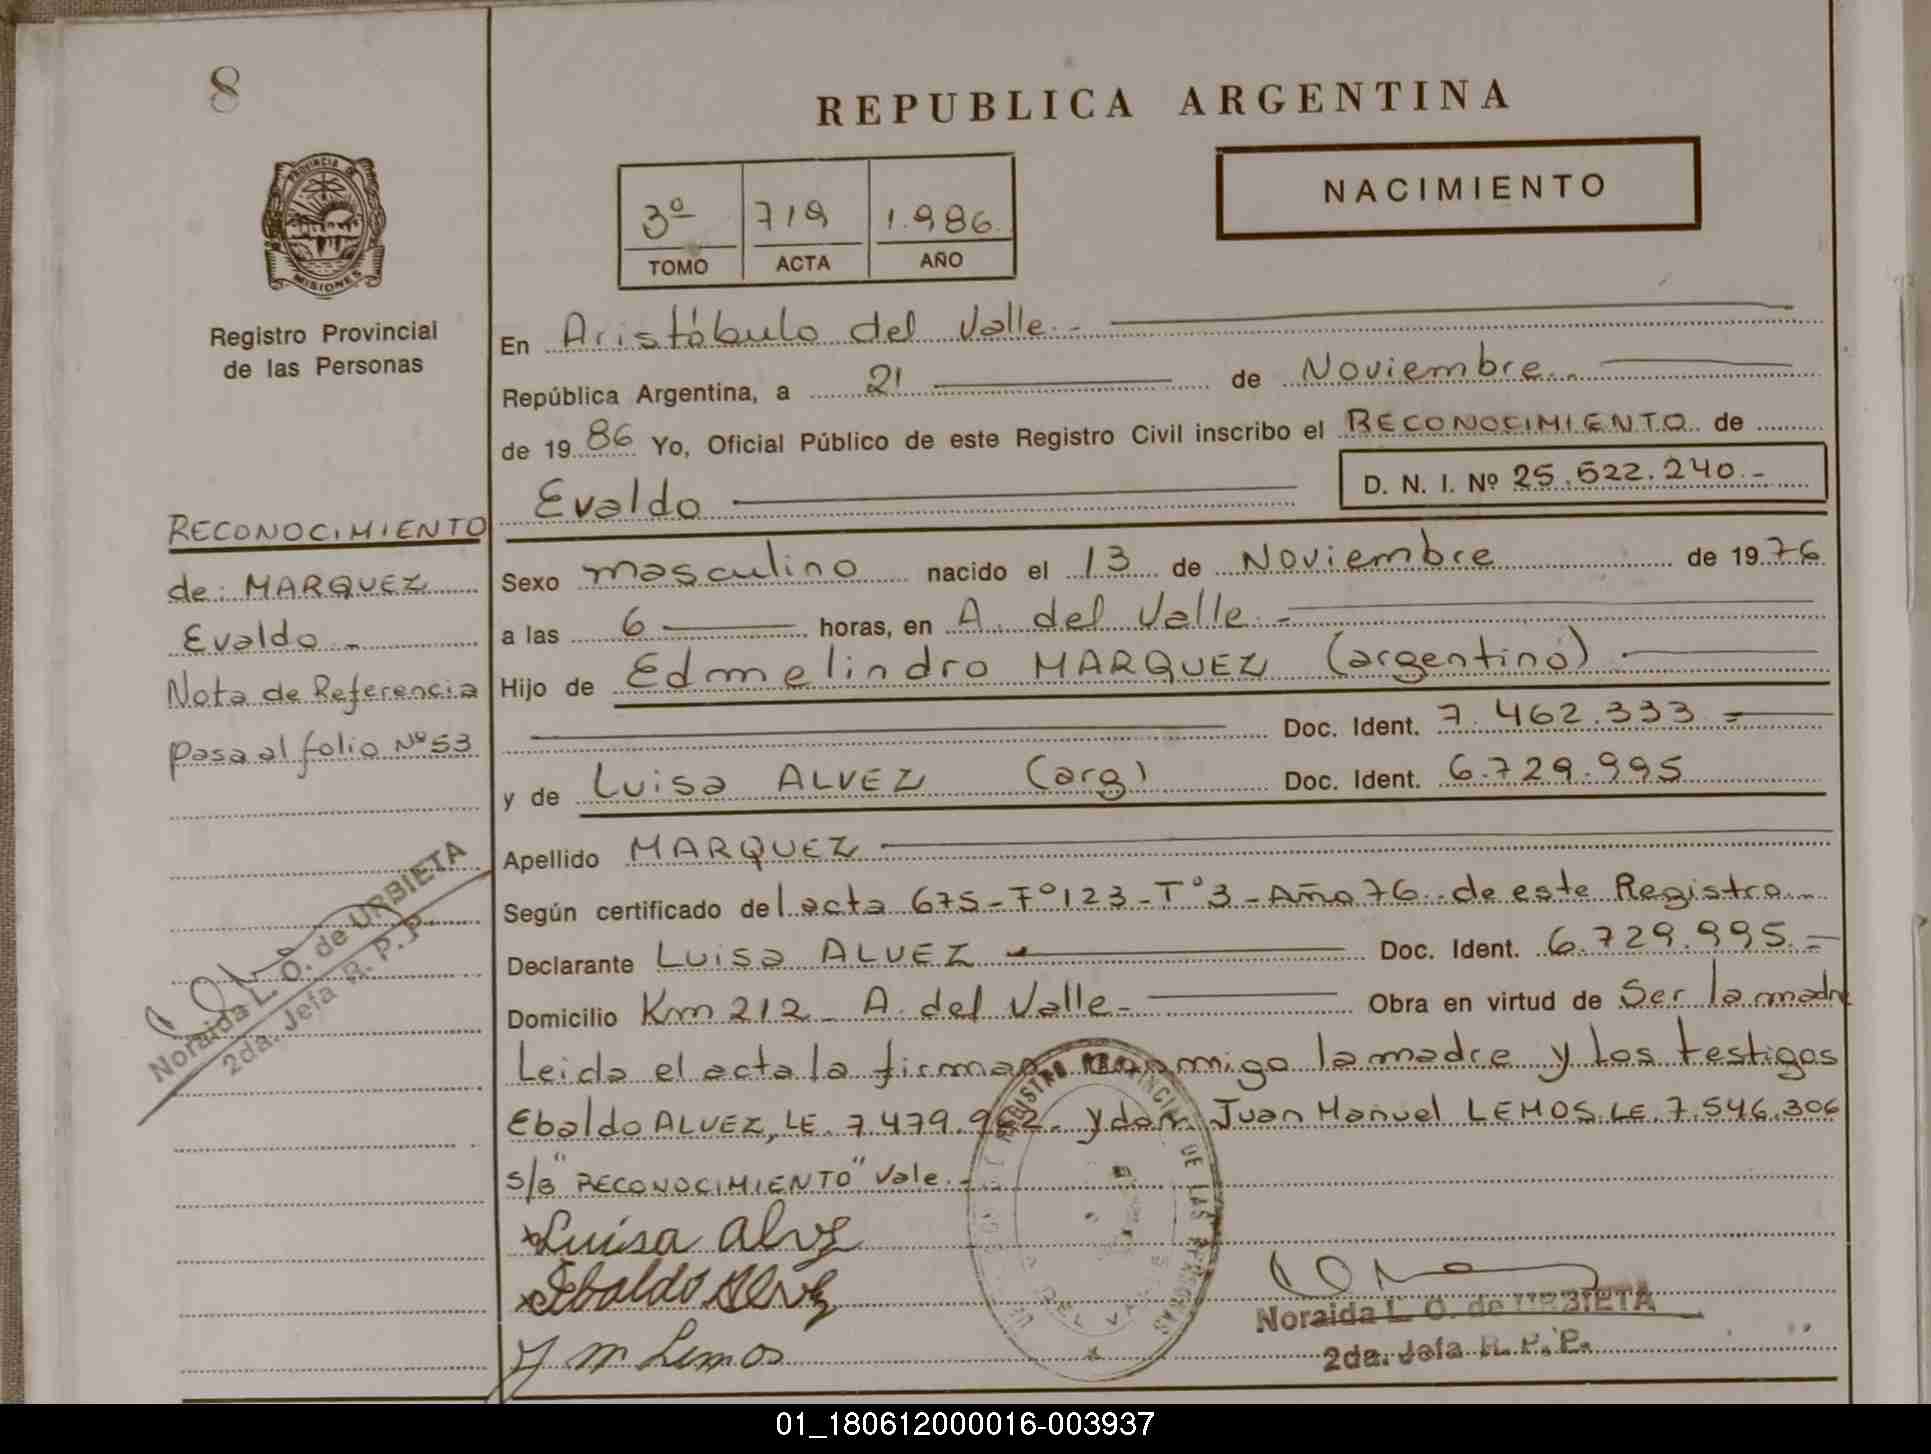 8
REPUBLICA ARGENTINA
PROVINCIA DE
MISIONES
Registro Provincial
de las Personas
3º 719 1.986.
TOMO ACTA AÑO
NACIMIENTO
En Aristóbulo del Valle.-
República Argentina, a 21 de Noviembre.-
de 1986 Yo, Oficial Público de este Registro Civil inscribo el RECONOCIMIENTO de
Evaldo
D. N. I. Nº 25.522.240.-
Sexo masculino nacido el 13 de Noviembre de 1976
a las 6 horas, en A. del Valle.-
Hijo de Edmelindro MARQUEZ (argentino)
Doc. Ident. 7.462.333.-
y de Luisa ALVEZ (arg) Doc. Ident. 6.729.995
Apellido MARQUEZ
Según certificado del acta 675-Fº123-Tº3-Año 76.. de este Registro.-
Declarante Luisa ALVEZ Doc. Ident. 6.729.995.-
Domicilio Km 212 - A. del Valle.- Obra en virtud de Ser la madre
Leida el acta la firman conmigo la madre y los testigos
Ebaldo ALVEZ, LE. 7.479.962. y don Juan Manuel LEMOS.LE.7.546.306
s/B "RECONOCIMIENTO" Vale.-
Luisa Alvez
Ebaldo Alvez
J M Lemos
Noraida L. O. de URBIETA
2da. Jefa R. P. P.
RECONOCIMIENTO
de: MARQUEZ
Evaldo.-
Nota de Referencia
pasa al folio Nº 53
Noraida L. O. de URBIETA
2da. Jefa R. P. P.
REGISTRO PROVINCIAL DE LAS PERSONAS
DEL VALLE
01_180612000016-003937